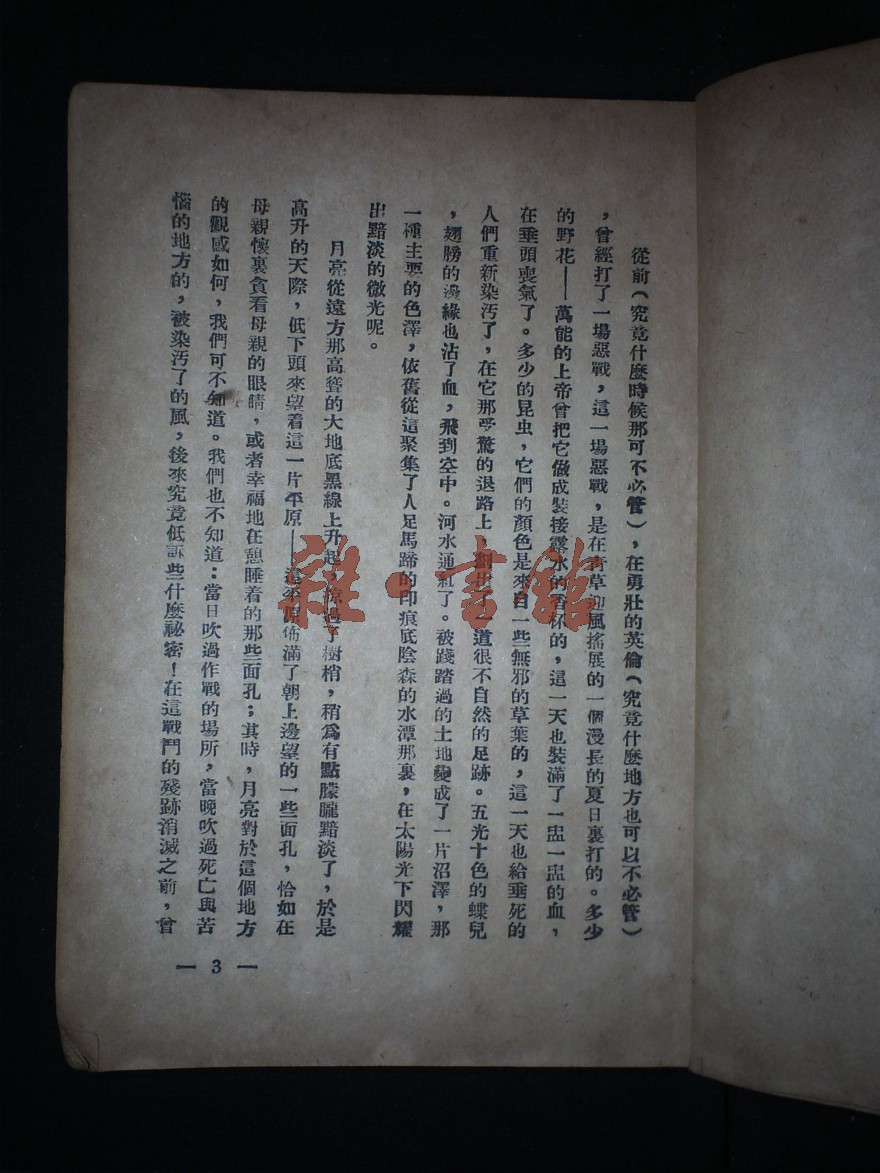 從前(究竟什麼時候那可不必管),在勇壯的英倫(究竟什麼地方也可以不必管)
,曾經打了一場惡戰,這一場惡戰,是在青草迎風搖展的一個漫長的夏日裏打的。多少
的野花——萬能的上帝曾把它做成裝接露水的香杯的,這一天也裝滿了一盅一盅的血,
在垂頭喪氣了。多少的昆虫,它們的顏色是來自一些無邪的草葉的,這一天也給垂死的
人們重新染汚了,在它那受驚的退路上,劃出了一道很不自然的足跡。五光十色的蝶兒
,翅膀的邊緣也沾了血,飛到空中。河水通紅了。被踐踏過的土地變成了一片沼澤,那
一種主要的色澤,依舊從這聚集了人足馬蹄的印痕底陰森的水潭那裏,在太陽光下閃耀
出黯淡的微光呢。
月亮從遠方那高聳的大地底黑線上升起,掠過了樹梢,稍爲有點朦朧黯淡了,於是
高升的天際,低下頭來望着這一片平原——這平原佈滿了朝上邊望的一些面孔,恰如在
母親懷裏貪看母親的眼睛,或者幸福地在憩睡着的那些面孔;其時,月亮對於這個地方
的觀感如何,我們可不知道。我們也不知道:當日吹過作戰的場所,當晚吹過死亡與苦
惱的地方的,被染汚了的風,後來究竟低訴些什麼祕密!在這戰鬥的殘跡消滅之前,曾
— 3 —
雜·書館